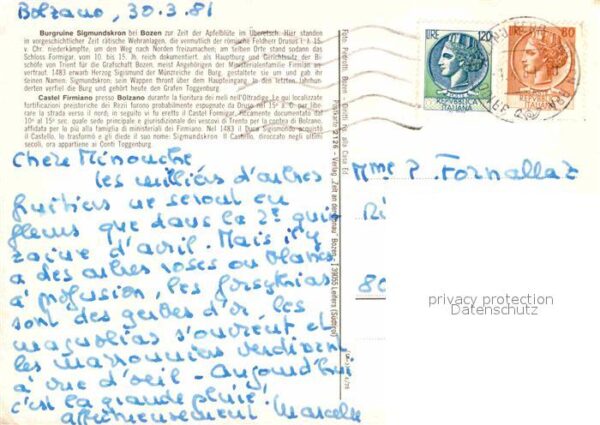 Bolzano, 30.3.81
Burgruine Sigmundskron bei Bozen zur Zeit der Apfelblüte im Überetsch. Hier standen
in vorgeschichtlicher Zeit rätische Wehranlagen, die vermutlich der römische Feldherr Drusus i. J. 15.
v. Chr. niederkämpfte, um den Weg nach Norden freizumachen; am selben Orte stand sodann das
Schloss Formigar, vom 10. bis 15. Jh. reich dokumentiert, als Hauptburg und Gerichtssitz der Bi-
schöfe von Trient für die Grafschaft Bozen,
vertraut. 1483 erwarb Herzog Sigmund der Münzreiche die Burg, gestaltete sie um und gab ihr
seinen Namen. Sigmundskron, sein Wappen thront über dem Haupteingang. In den letzten Jahrhun-
derten verfiel die Burg und gehört heute den Grafen Toggenburg.
Castel Firmiano presso Bolzano durante la fioritura dei meli nell'Oltradige. Le qui localizzate
fortificazioni preistoriche dei Rezi furono probabilmente espugnate da Druso nel 15° a. C. per libe-
rare la strada verso il nord; in seguito vi fu eretto il Castel Formigar, riccamente documentato dal
10° al 15° sec. quale sede principale e giurisdizionale dei vescovi di Trento per la contea di Bolzano,
affidata per lo più alla famiglia di ministeriali dei Firmiano. Nel 1483 il Duca Sigismondo acquistò
il Castello, lo trasformò e gli diede il suo nome: Sigmundskron. Il Castello, diroccato negli ultimi
secoli, ora appartiene ai Conti Toggenburg.
Chère Minouche
les milliers d'arbres
fruitiers ne seront en
fleurs que dans la 2e quin
zaine d'avril. Mais il y
a des arbres roses ou blancs
à profusion, les forsythias
sont des gerbes d'or, les
magnolias s'ouvrent et
les marronniers verdissent
à vue d'oeil - Aujourd'hui
c'est la grande pluie!
affectueusement Marcelle
LIRE 120
REPUBBLICA
ITALIANA
LIRE 80
Mme P. Fornallaz
Ri
80
privacy protection
Datenschutz